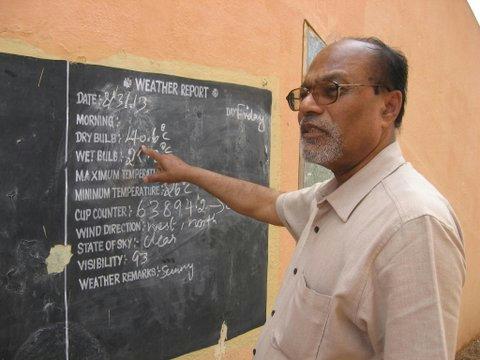 WEATHER REPORT
DATE:- 8/3/13 DAY Friday
MORNING:-
DRY BULB:- 40.6°C
WET BULB:- °C
MAXIMUM TEMPERAT
MINIMUM TEMPERATURE:- 26°C
CUP COUNTER:- 638942
WIND DIRECTION:- west, north
STATE OF SKY:- clear
VISIBILITY:- 93
WEATHER REMARKS:- Sunny